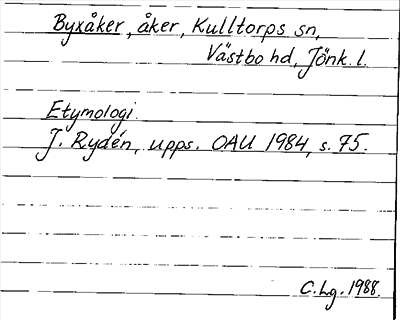 Byxåker, åker, Kulltorps sn,
Västbo hd, Jönk. l.
Etymologi.
J. Rydén, upps. OAU 1984, s. 75.
C. Lg. 1988.